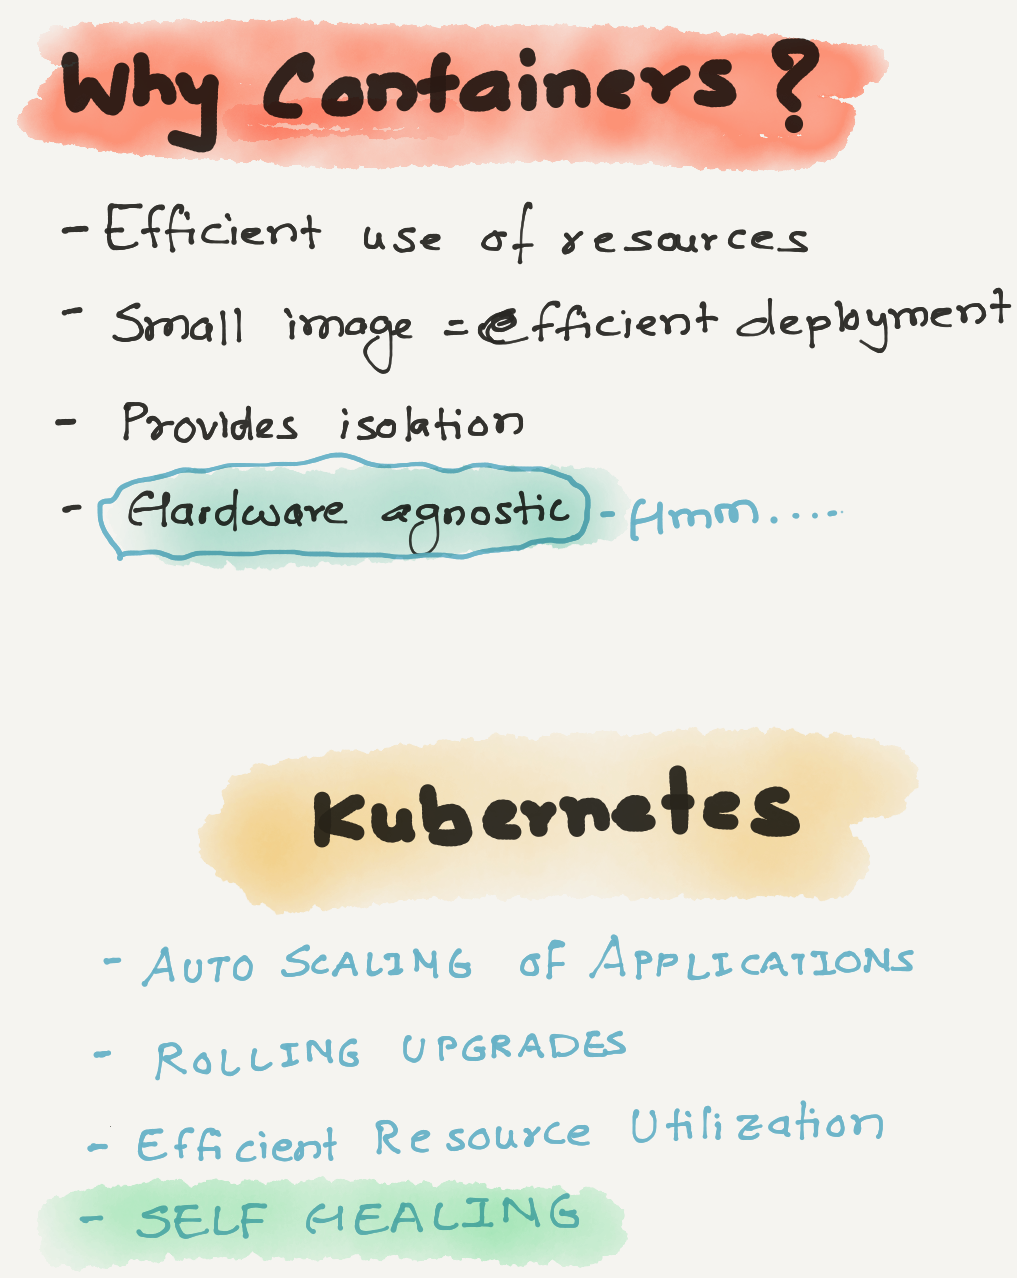 Why Containers ?
- Efficient use of resources
- Small image = efficient deployment
- Provides isolation
- Hardware agnostic - Hmm.....
Kubernetes
- AUTO SCALING OF APPLICATIONS
- ROLLING UPGRADES
- Efficient Resource Utilization
- SELF HEALING